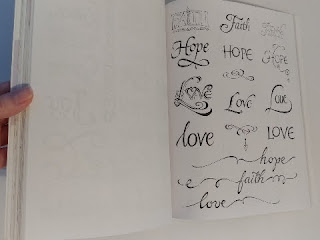 Faith Faith Faith
Hope HOPE Hope
Love Love Love
love LOVE
hope
faith
love